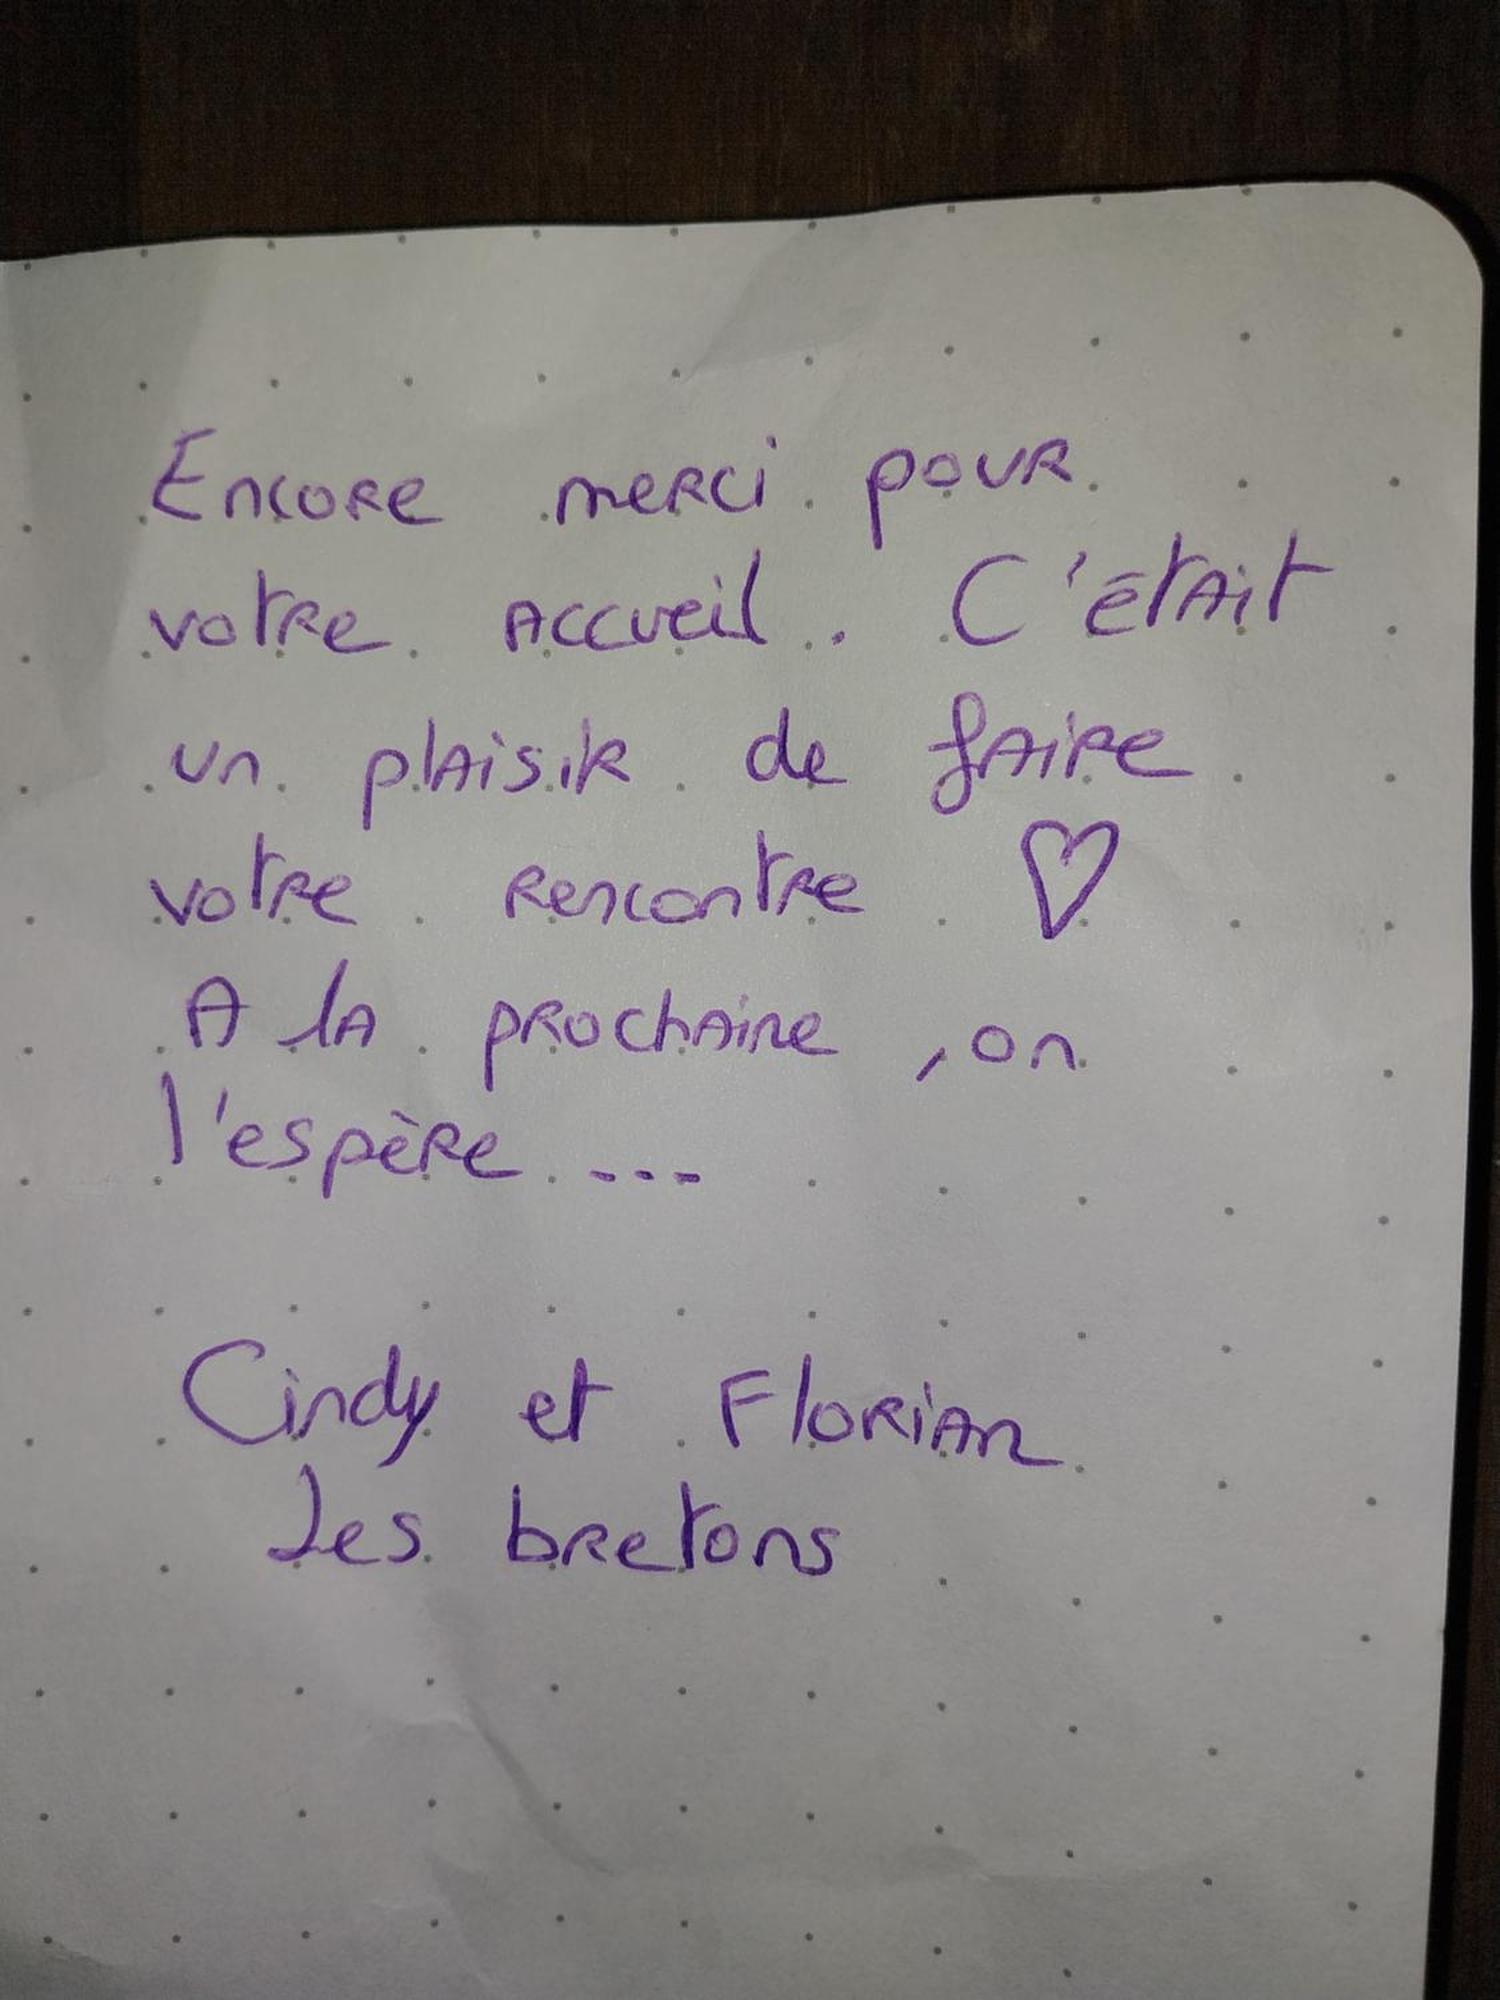 Encore merci pour
votre accueil. C'était
un plaisir de faire
votre rencontre ♡
A la prochaine, on
l'espère...
Cindy et Florian
Les bretons